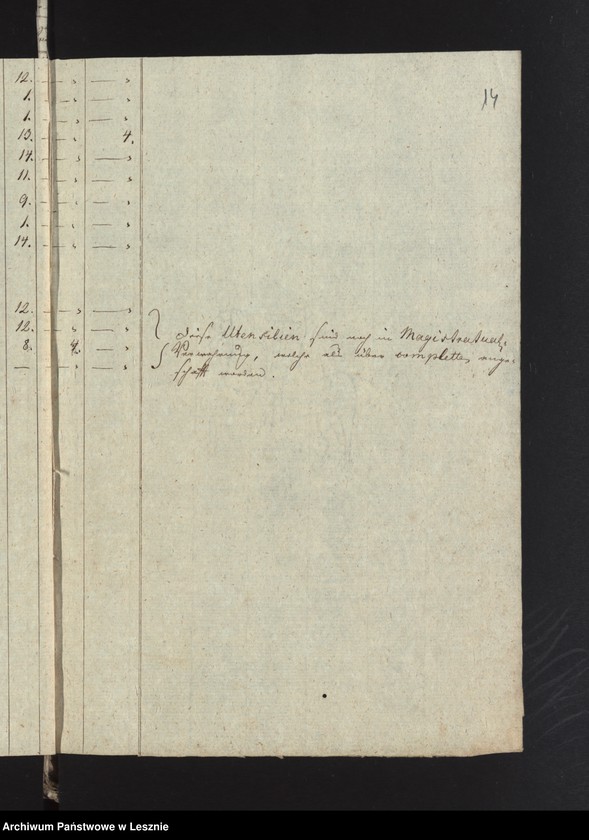 14
12. — „ — „
1. — „ — „
1. — „ — „
13. — „ 4.
14. — „ — „
11. — „ — „
9. — „ — „
1. — „ — „
14. — „ — „
12. — „ — „
12. — „ — „
8. 4. — „
— — „ — „
Diese Utensilien sind noch in Magistratual-
Verwahrung, welche als über complette, ange-
schafft worden.
Archiwum Państwowe w Lesznie